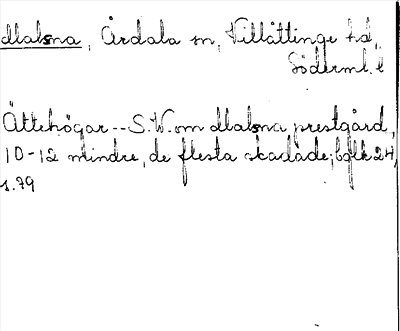 Malsna, Årdala sn, Villåttinge hd,
Söderml. l
Ättehögar -- S.W. om Malsna prestgård,
10-12 mindre, de flesta skadade; bflk 24,
s.79